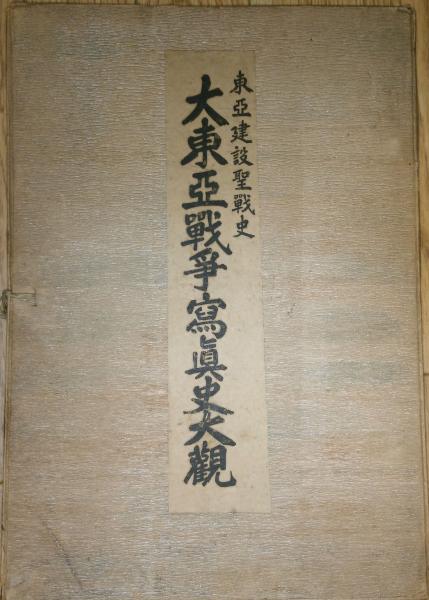 東亞建設聖戰史
大東亞戰爭寫眞史大觀